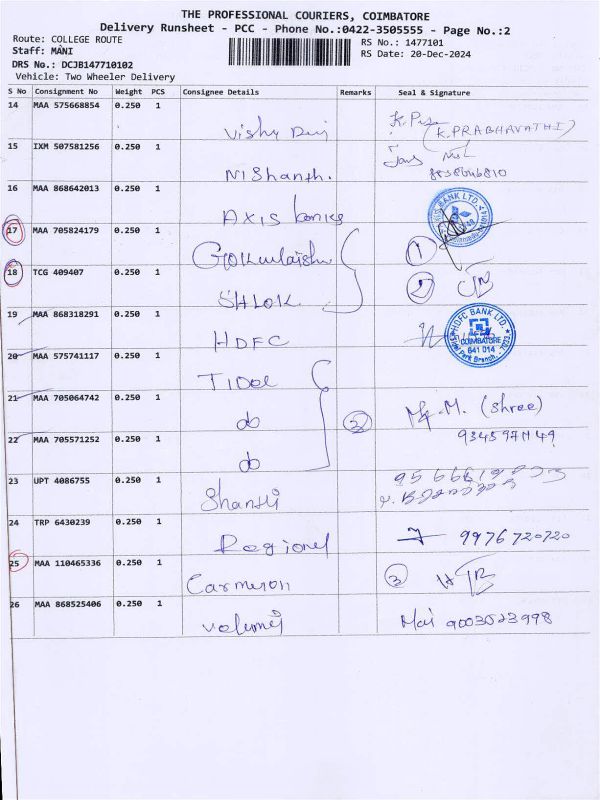 THE PROFESSIONAL COURIERS, COIMBATORE
Delivery Runsheet - PCC - Phone No.:0422-3505555 - Page No.:2
Route: COLLEGE ROUTE
RS No.: 1477101
Staff: MANI
RS Date: 20-Dec-2024
DRS No.: DCJB147710102
Vehicle: Two Wheeler Delivery
S No Consignment No Weight PCS Consignee Details Remarks Seal & Signature
14 MAA 575668854 0.250 1
(K.PRABHAVATHI)
15 IXM 507581256 0.250 1
NIShanth.
16 MAA 868642013 0.250 1
AXIS
17 MAA 705824179 0.250 1
1
18 TCG 409407 0.250 1
SHLOK
2
19 MAA 868318291 0.250 1
HDFC
HDFC BANK LTD.
COIMBATORE
641 014
20 MAA 575741117 0.250 1
TIDOL
21 MAA 705064742 0.250 1
do
3
M. (Shree)
22 MAA 705571252 0.250 1
do
23 UPT 4086755 0.250 1
Shanthi
24 TRP 6430239 0.250 1
Regional
9976720720
25 MAA 110465336 0.250 1
Carmeron
3
26 MAA 868525406 0.250 1
9003523998